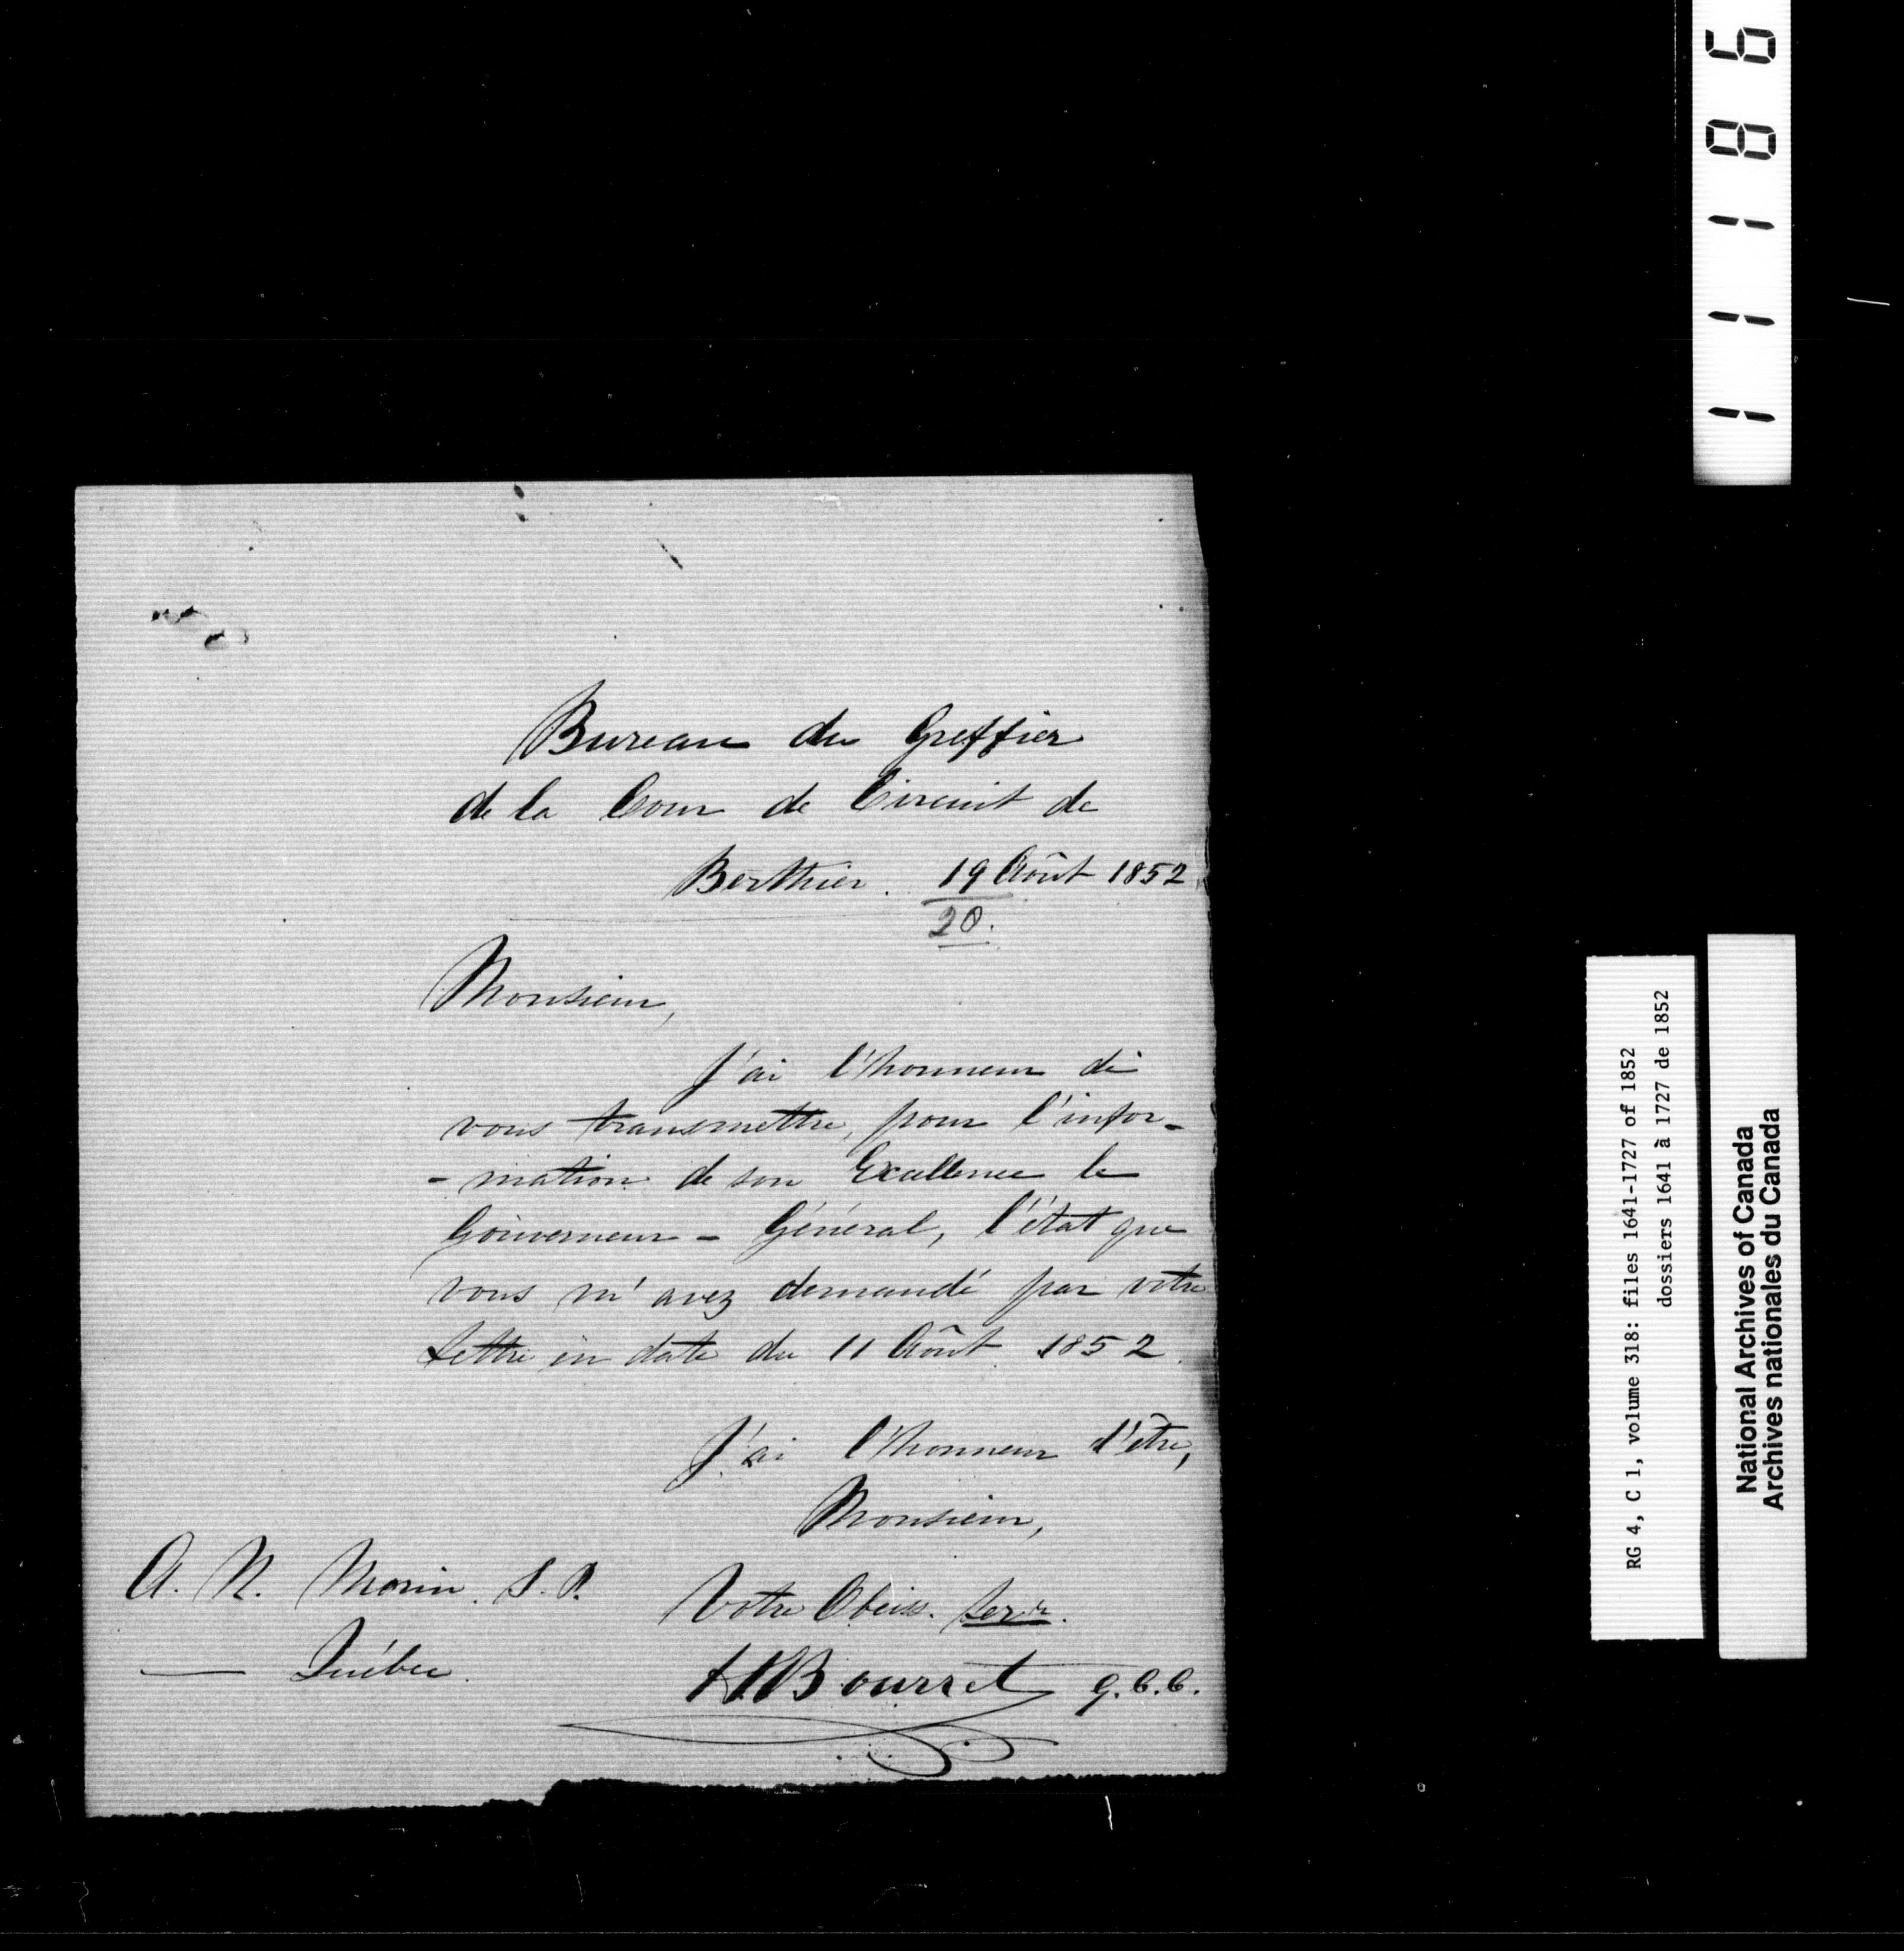 Bureau du Greffier
de la Cour de Circuit de
Berthier. 19 Août 1852
20.
Monsieur,
J'ai l'honneur de
vous transmettre, pour l'infor-
- mation de son Excellence le
Gouverneur - Général, l'état que
vous m'avez demandé par votre
lettre en date du 11 Août 1852.
J'ai l'honneur d'être,
Monsieur,
Votre Obeiss. Servr.
A. N. Morin. S. P.
Québec.
HBourret g.C.C.
11186
RG 4, C 1, volume 318: files 1641-1727 of 1852
dossiers 1641 à 1727 de 1852
National Archives of Canada
Archives nationales du Canada